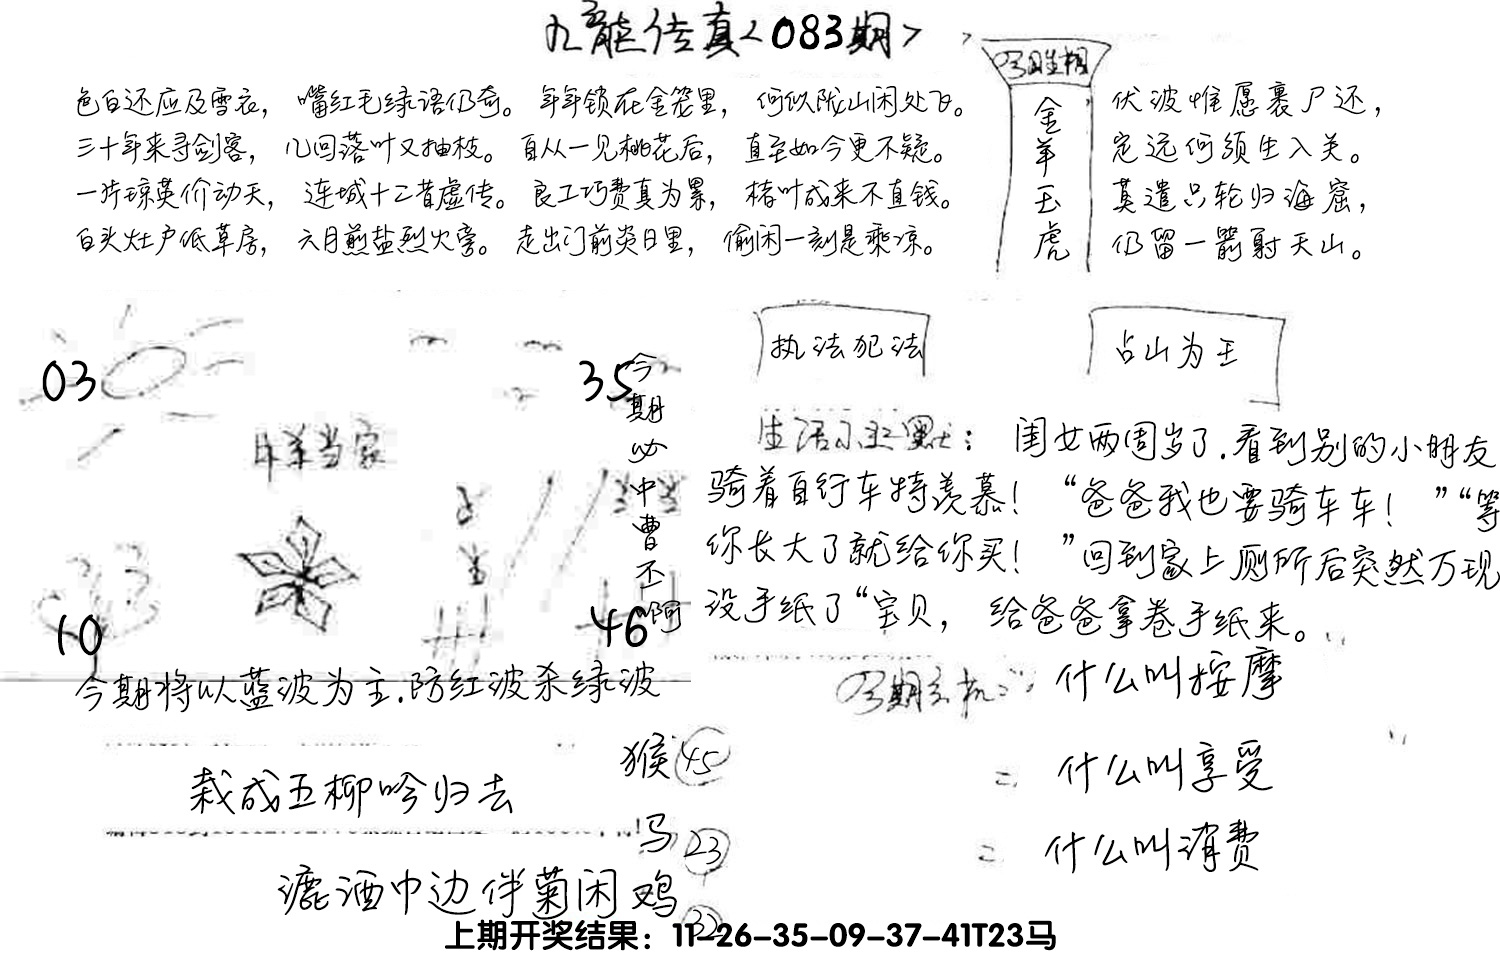 九龙传真<083期>
今期生相
金羊玉虎
色白还应及雪衣，嘴红毛绿语仍奇。年年锁在金笼里，何似陇山闲处飞。
三十年来寻剑客，几回落叶又抽枝。自从一见桃花后，直至如今更不疑。
一片琼英价动天，连城十二昔虚传。良工巧费真为累，楮叶成来不直钱。
白头灶户低草房，六月煎盐烈火旁。走出门前炎日里，偷闲一刻是乘凉。
伏波惟愿裹尸还，
定远何须生入关。
莫遣只轮归海窟，
仍留一箭射天山。
03
35
10
46
今期必中曹不啊
今期将以蓝波为主.防红波杀绿波
执法犯法
占山为王
生活小幽默：闺女两周岁了.看到别的小朋友
骑着自行车特羡慕！“爸爸我也要骑车车！”“等
你长大了就给你买！”回到家上厕所后突然万现
没手纸了“宝贝，给爸爸拿卷手纸来。
今期玄机：什么叫按摩
二 什么叫享受
二 什么叫消费
栽成五柳吟归去
漉酒巾边伴菊闲
猴 45
马 23
鸡 32
上期开奖结果：11-26-35-09-37-41T23马